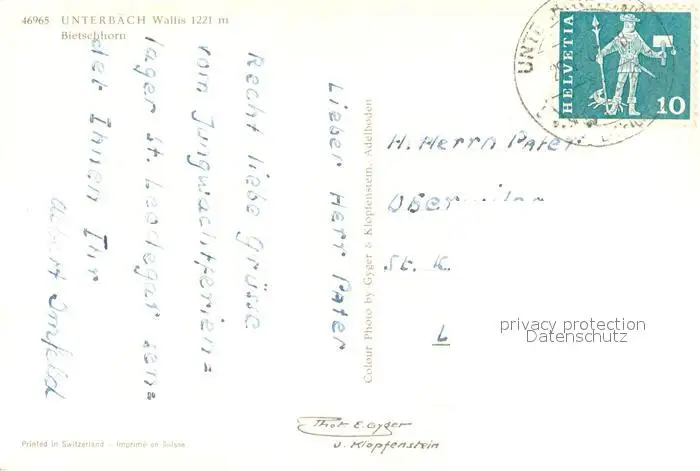 46965 UNTERBÄCH Wallis 1221 m
Bietschhorn
HELVETIA
10
UNTE
Lieber Herr Pater
Recht liebe Grüsse
vom Jungwachtferien=
lager St. Leodegar sen=
det Ihnen Ihr
Imfeld
Colour Photo by Gyger & Klopfenstein, Adelboden
H. Herrn Pater
St. K.
L
privacy protection
Datenschutz
Phot E. Gyger
u. Klopfenstein
Printed in Switzerland - Imprimé en Suisse